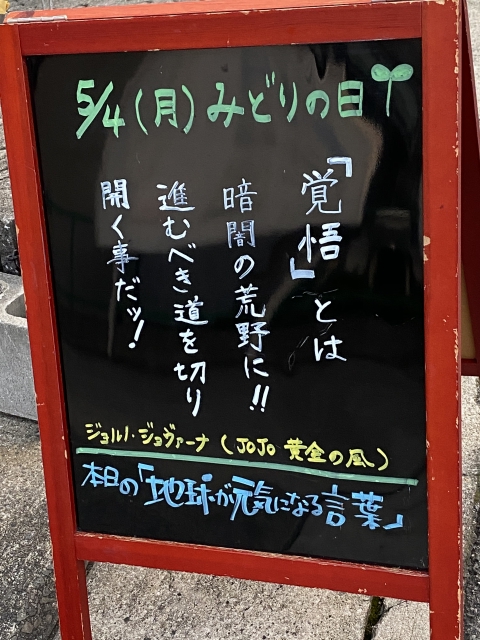 5/4(月)みどりの日
「覚悟」とは
暗闇の荒野に!!
進むべき道を切り
開く事だッ!
ジョルノ・ジョヴァーナ(JOJO 黄金の風)
本日の「地球が元気になる言葉」